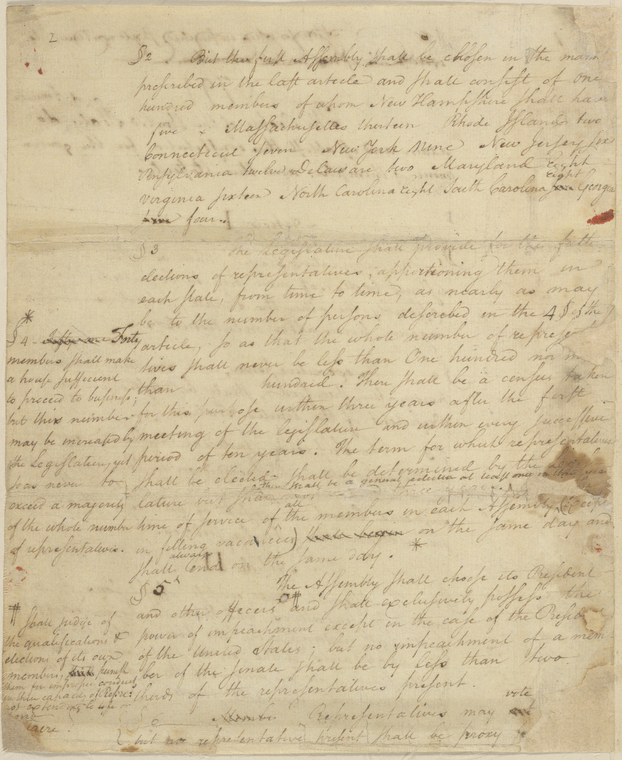 2
§ 2. But the first Assembly shall be chosen in the mann
prescribed in the last article and shall consist of one
hundred members of whom New Hampshire shall ha
five . Massachusettes thirteen Rhode Island two
Connecticut seven New York Nine New Jersey six
Pensylvania twelve Delaware two Maryland eight
eight
Virginia sixteen North Carolina eight South Carolina Georgia
four.
§ 3 The Legislature shall provide for the future
elections of representatives, apportioning them in
each state, from time to time, as nearly as may
be to the number of persons described in the 4 § of the
article, so as that the whole number of represen
tatives shall never be less than One hundred nor m
than hundred. There shall be a census taken
for this purpose within three years after the first
meeting of the legislature and within every successive
period of ten years. The term for which representatives
shall be elected shall be determined by the
lature but
there shall be a general election at least once in three years
all
time of service of the members in each Assembly (except
in filling vacancies) on the same day and
always
shall end on the same day. *
§ 5 The Assembly shall choose its President
and other officers # and shall exclusively possess the
power of impeachment except in the case of the President
of the United States; but no impeachment of a mem
ber of the Senate shall be by less than two
thirds of the representatives present.
Representatives may vote
but no representative present shall be proxy
*
§ 4. Forty
members shall make
a house sufficient
to proceed to business;
but this number
may be increased by
the Legislature, yet
so as never to
exceed a majority
of the whole number
of representatives.
# shall judge of
the qualifications &
elections of its own
members, punish
them for improper conduct